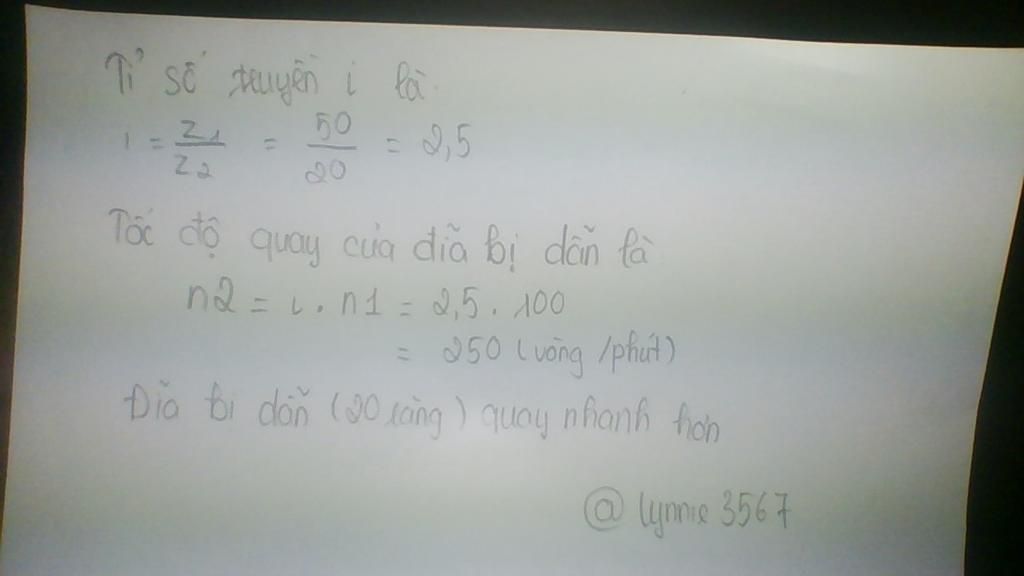 Tỉ số truyền i là
i = Z1/Z2 = 50/20 = 2,5
Tốc độ quay của đĩa bị dẫn là
n2 = i . n1 = 2,5 . 100
= 250 (vòng /phút)
Đĩa bi dẫn (20 răng) quay nhanh hơn
@lynnie 3567